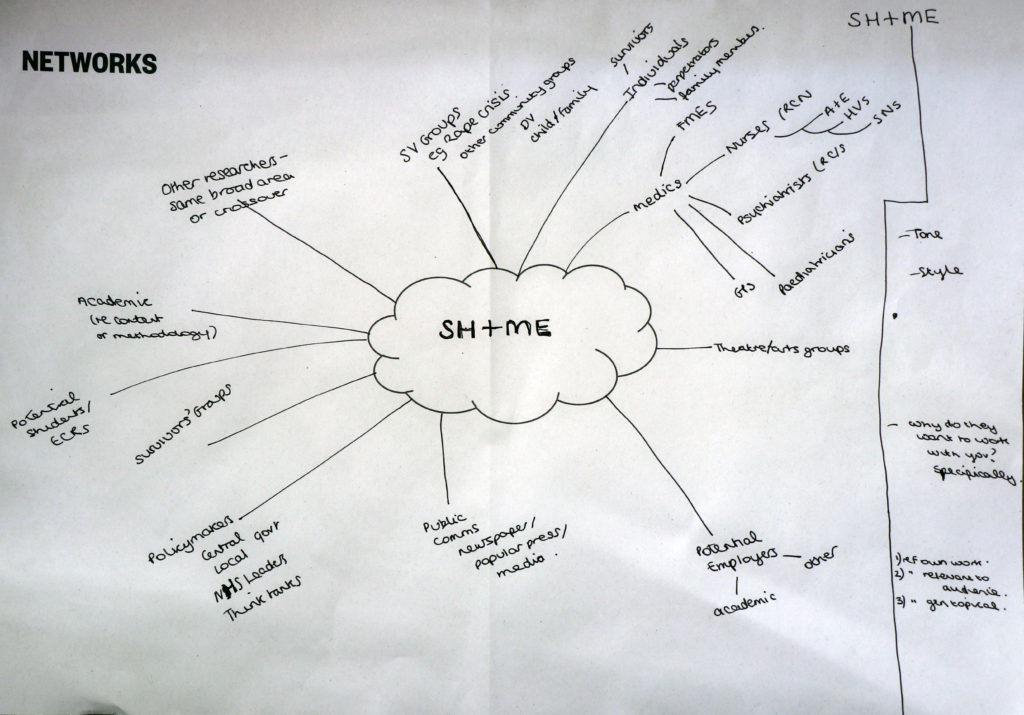 NETWORKS
SH+ME
Other researchers-
same broad area
or crossover
SV Groups
eg Rape Crisis
other community groups
DV
child/family
survivors
Individuals
perpetrators
family members.
FMES
Medics
Nurses (RCN
A+E
HVS
SNS
Psychiatrists (RC/S
Paediatricians
GPS
Academic
(re context
or methodology)
SH+ME
Theatre/arts groups
Potential
students/
ECRS
Survivors' Groups
Policymakers
Central govt
local
NHS Leaders
Think tanks
Public
comms
newspaper/
popular press/
media.
Potential
Employers — other
academic
- Tone
- Style
- Why do they
want to work
with you?
Specifically.
1) ref own work.
2) " relevant to
audience.
3) " gen topical.